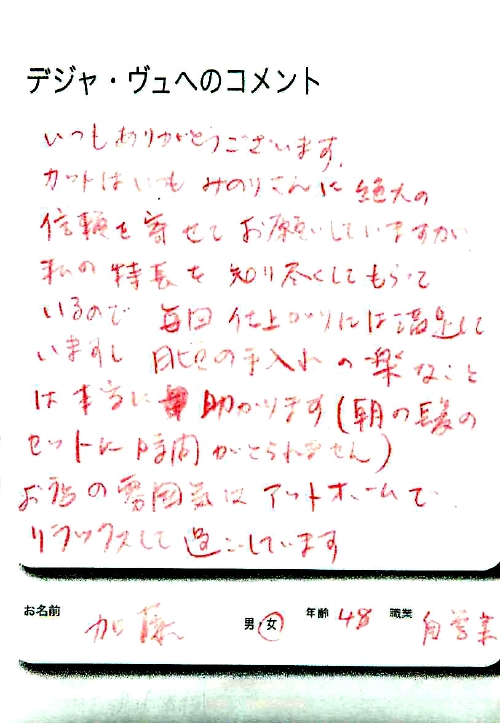 デジャ・ヴュへのコメント
いつもありがとうございます。
カットはいつも みのりさんに 絶大の
信頼を寄せて お願いしていますが
私の 特長を 知り尽くしてもらって
いるので 毎回 仕上がりには満足して
いますし 日頃の手入れの楽なこと
は本当に 助かります(朝の髪の
セットに時間がとられません)
お店の雰囲気は アットホームで
リラックスして 過ごしています
お名前 加藤 男・女 年齢 48 職業 自営業